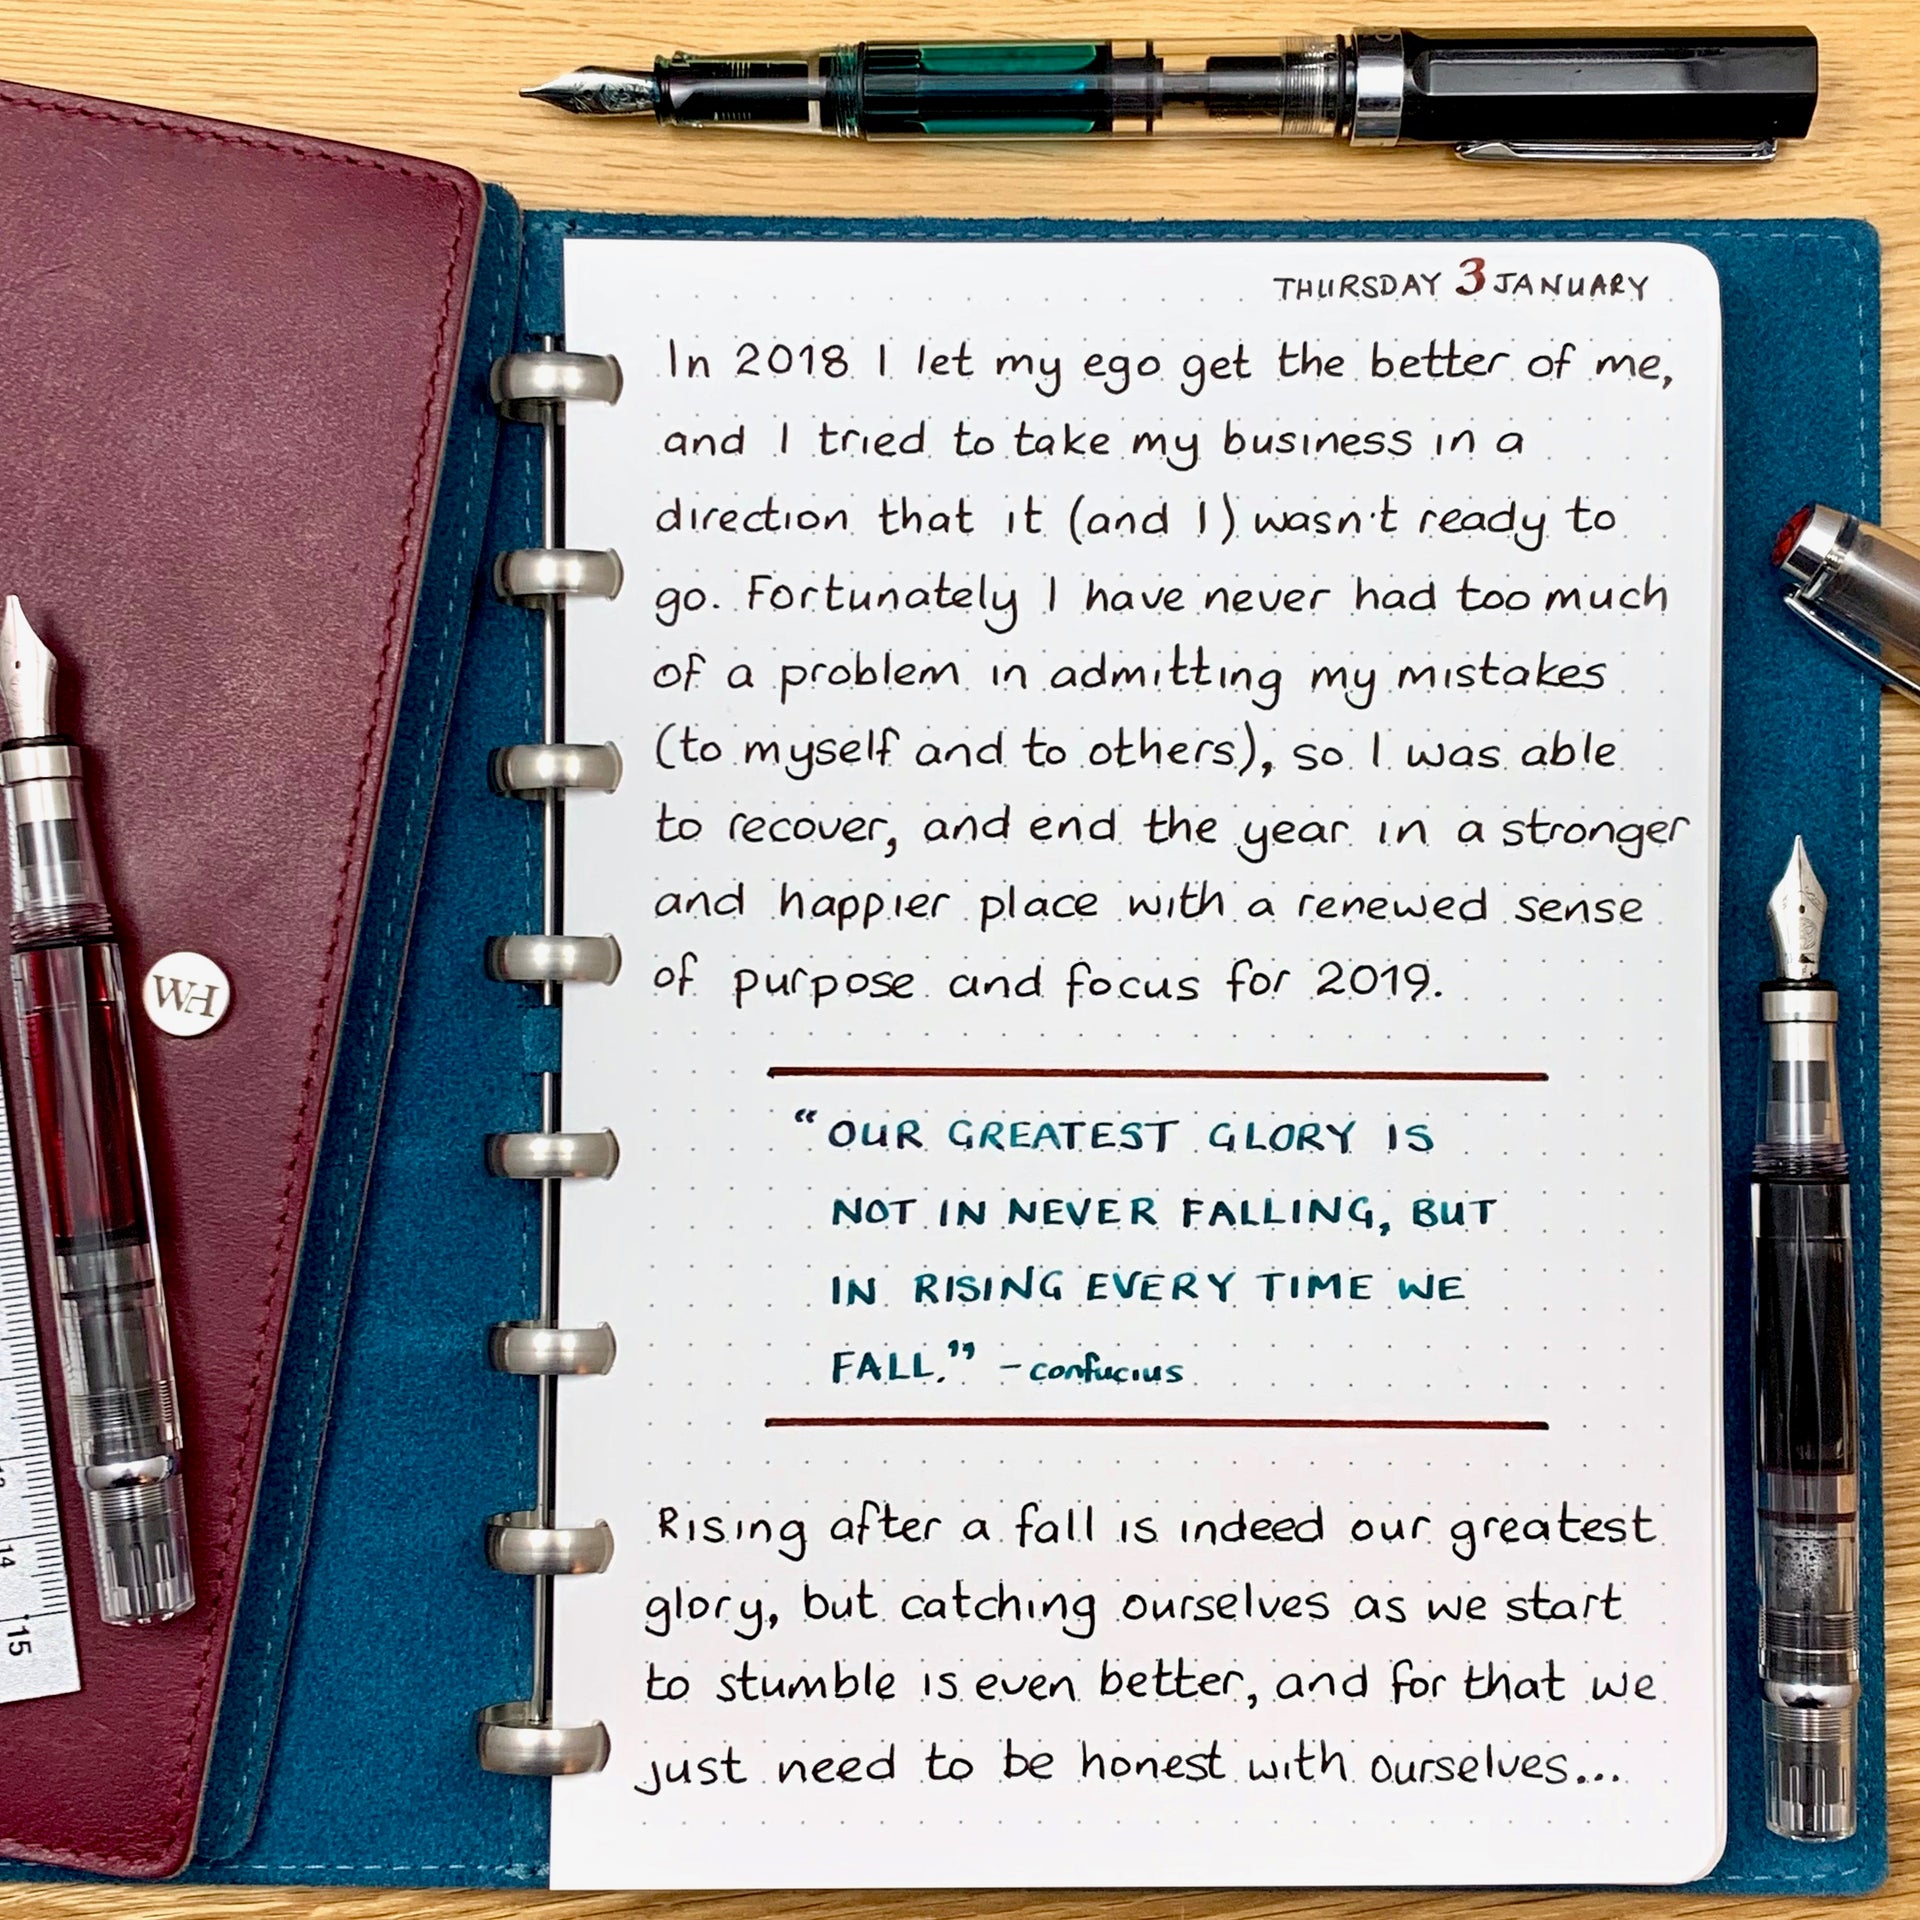 THURSDAY 3 JANUARY
In 2018 I let my ego get the better of me,
and I tried to take my business in a
direction that it (and I) wasn't ready to
go. Fortunately I have never had too much
of a problem in admitting my mistakes
(to myself and to others), so I was able
to recover, and end the year in a stronger
and happier place with a renewed sense
of purpose and focus for 2019.
"OUR GREATEST GLORY IS
NOT IN NEVER FALLING, BUT
IN RISING EVERY TIME WE
FALL." - confucius
Rising after a fall is indeed our greatest
glory, but catching ourselves as we start
to stumble is even better, and for that we
just need to be honest with ourselves...
WH
14
15